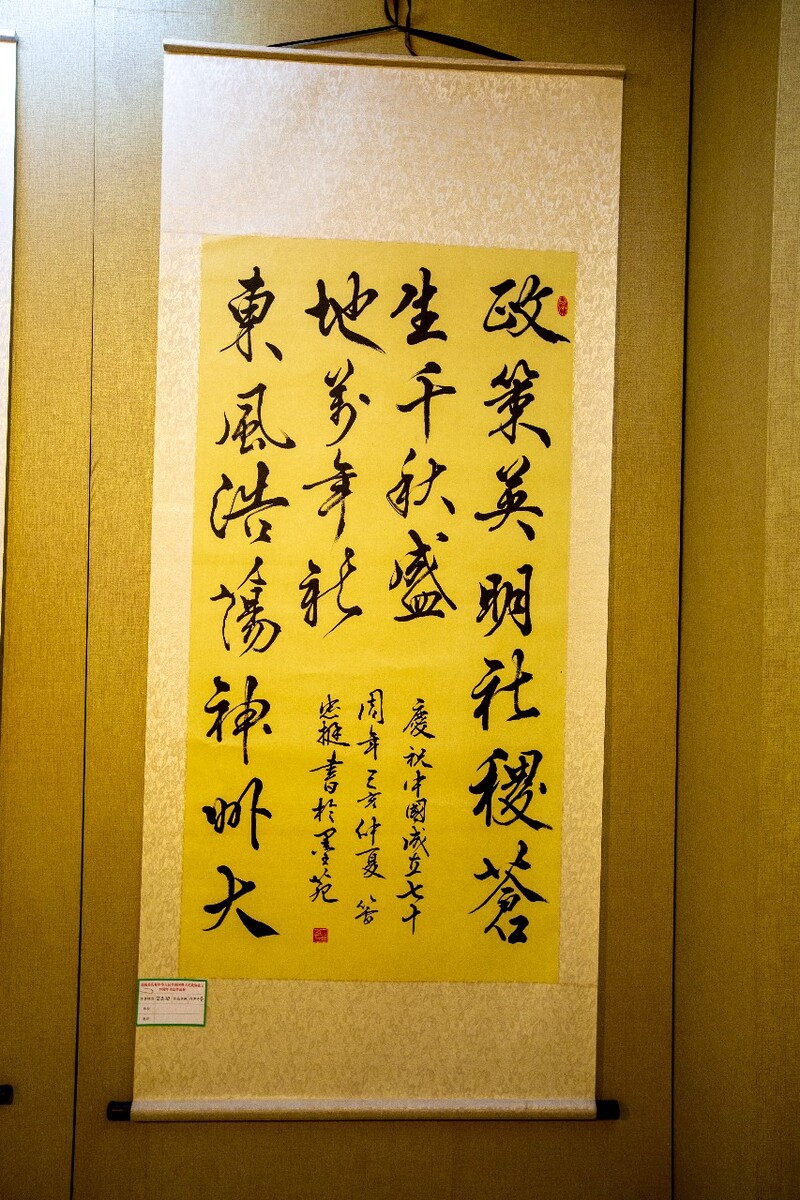 政策英明社稷蒼
生千秋盛
東風浩蕩神州大
地萬年
慶祝中國成立七十
周年己亥仲夏
忠挺書於墨苑